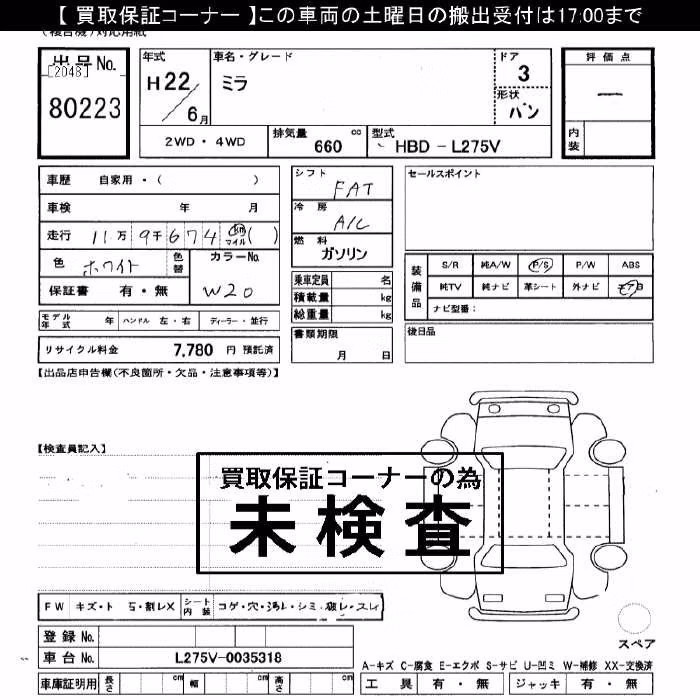 【 買取保証コーナー 】この車両の土曜日の搬出受付は17:00まで
出品No.
[2048]
80223
年式
H22
6月
車名・グレード
ミラ
ドア
3
形状
バン
評価点
ー
内装
2WD ・ 4WD
排気量 660 cc
型式 HBD - L275V
車歴 自家用・( )
車検 年 月
走行 11万 9千 674 km マイル ( )
色 ホワイト 色替
カラーNo.
W20
保証書 有・無
シフト
FAT
冷房
A/C
燃料
ガソリン
乗車定員 名
積載量 kg
総重量 kg
セールスポイント
装備品
S/R 純A/W P/S P/W ABS
純TV 純ナビ 革シート 外ナビ
ナビ型番:
モデル年式 年 ハンドル 左・右 ディーラー・並行
リサイクル料金 7,780 円 預託済
書類期限
月 日
後日品
【出品店申告欄(不良箇所・欠品・注意事項等)】
【検査員記入】
買取保証コーナーの為
未検査
FW キズ・ト 石・割レX シート内装 コゲ・穴・汚レ・シミ・破レ・スレ
登録No.
車台No. L275V-0035318
車庫証明用 長さ cm 幅 cm 高さ cm
スペア
A-キズ C-腐食 E-エクボ S-サビ U-凹ミ W-補修 XX-交換済
工具 有・無 ジャッキ 有・無